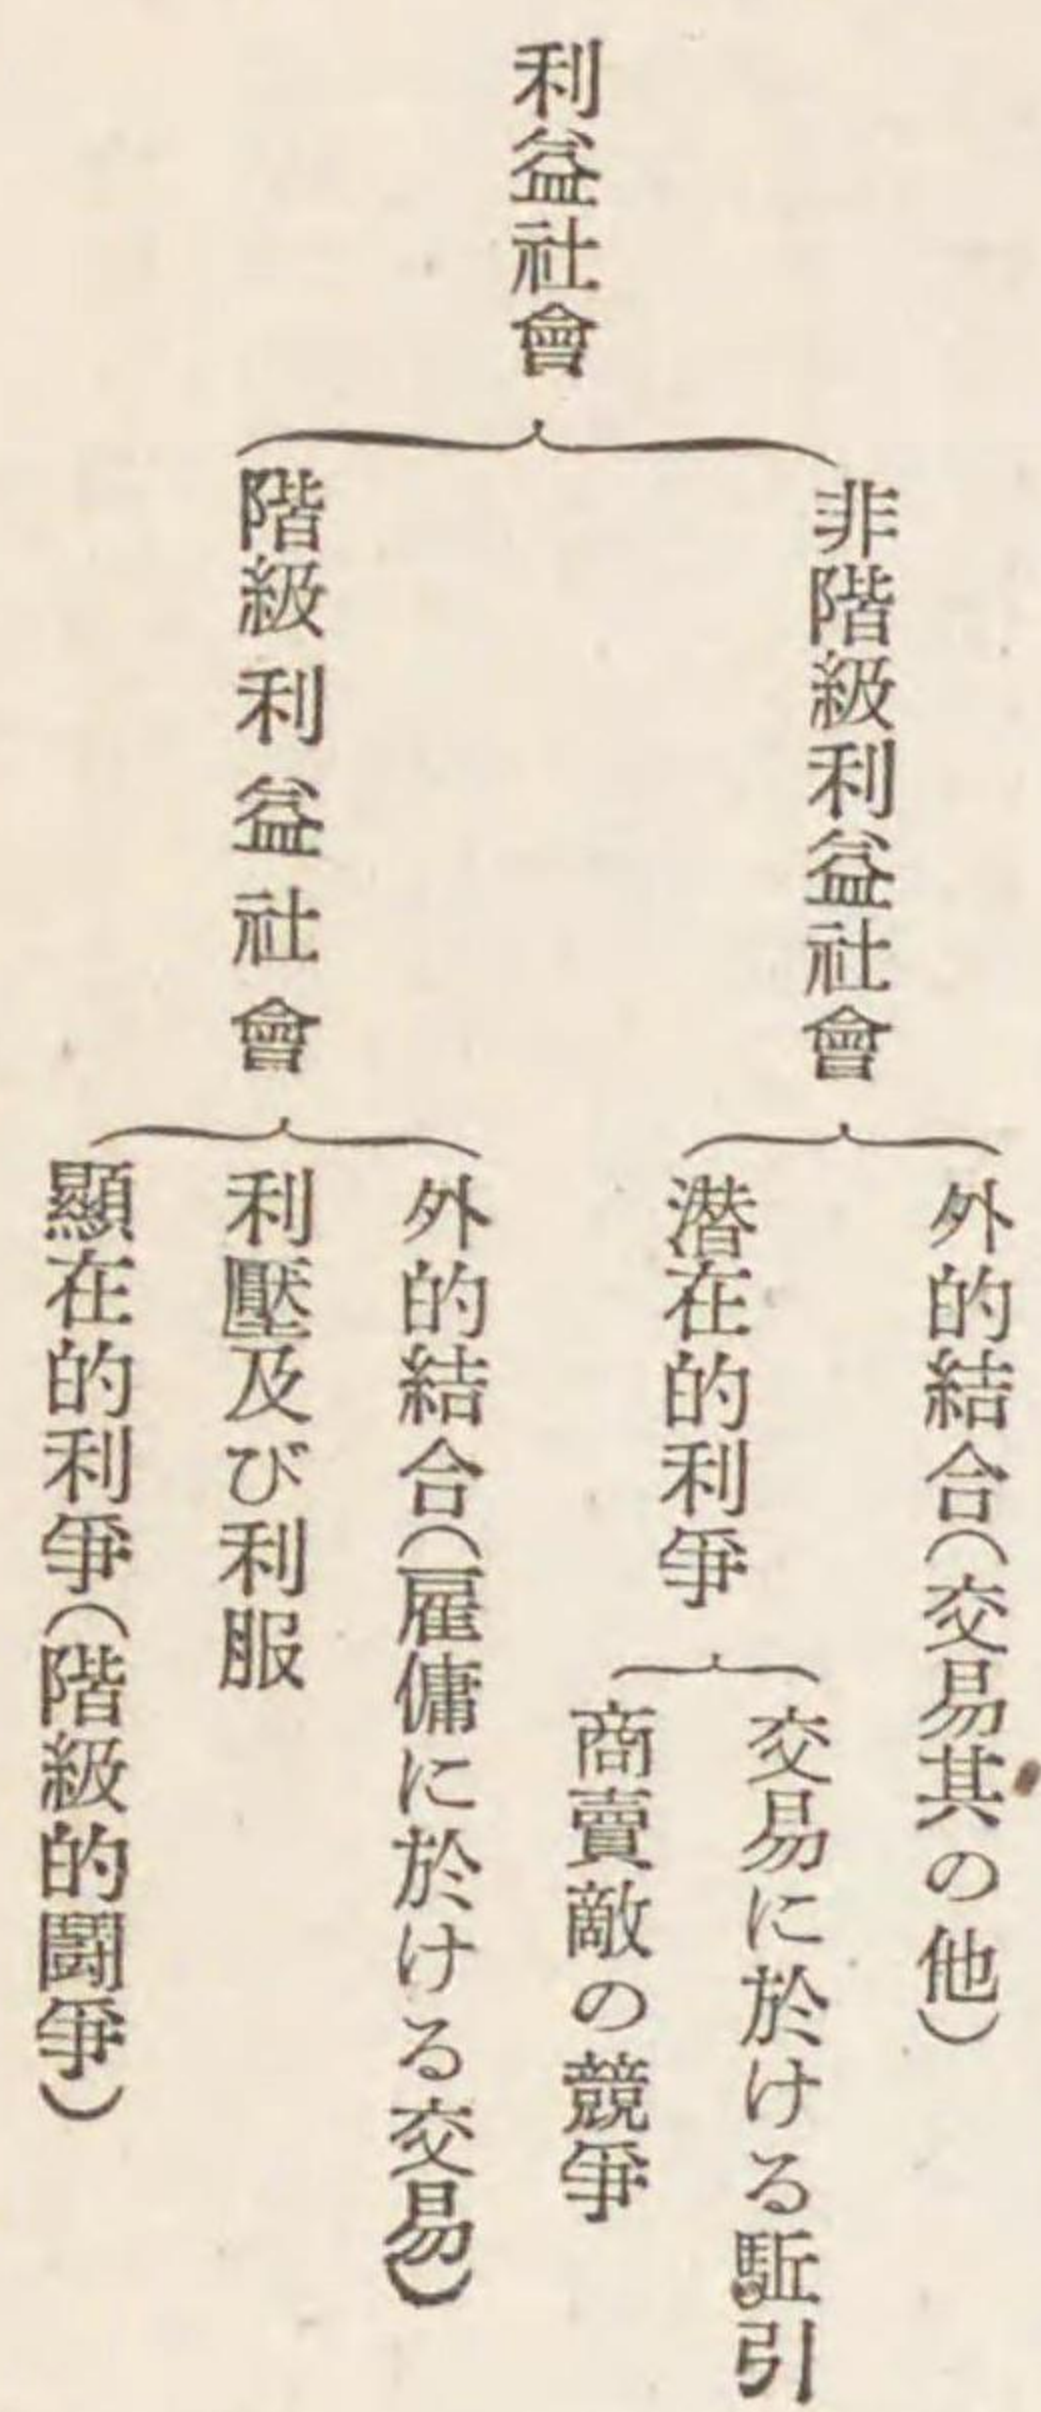 利益社會
非階級利益社會
外的結合(交易其の他)
潜在的利爭
交易に於ける駈引
商賣敵の競爭
階級利益社會
外的結合(雇傭に於ける交易)
利壓及び利服
顯在的利爭(階級的鬪爭)